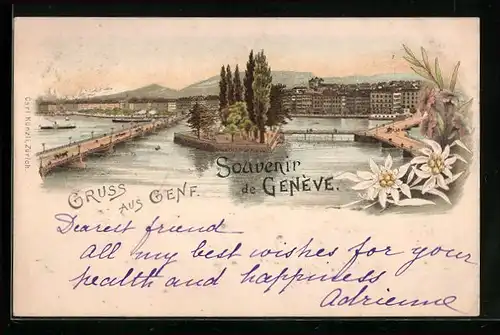 Carl Künzli, Zürich
Souvenir
de GENÈVE.
GRUSS
AUS GENF.
Dearest friend
all my best wishes for your
health and happiness
Adrienne